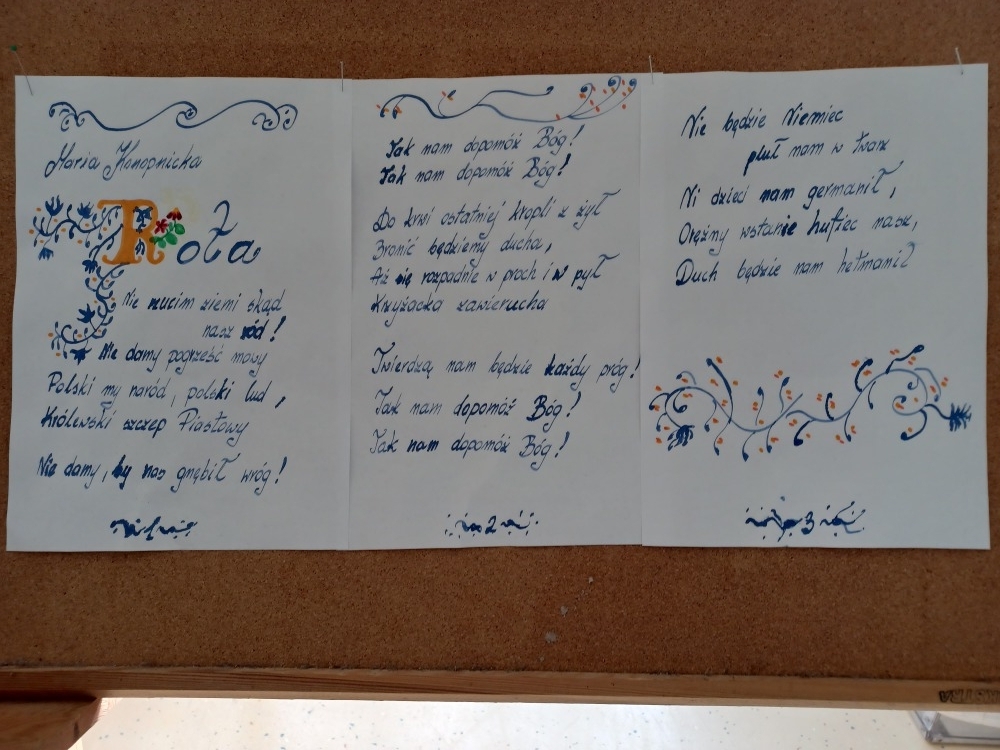 Maria Konopnicka
Rota
Nie rzucim ziemi skąd
nasz ród!
Nie damy pogrześć mowy
Polski my naród, polski lud,
Królewski szczep Piastowy
Nie damy, by nas gnębił wróg!
1
Tak nam dopomóż Bóg!
Tak nam dopomóż Bóg!
Do krwi ostatniej kropli z żył
Bronić będziemy ducha,
Aż się rozpadnie w proch i w pył
Krzyżacka zawierucha
Twierdzą nam będzie każdy próg!
Tak nam dopomóż Bóg!
Tak nam dopomóż Bóg!
2
Nie będzie Niemiec
pluł nam w twarz
Ni dzieci nam germanił,
Orężny wstanie hufiec nasz,
Duch będzie nam hetmanił
3